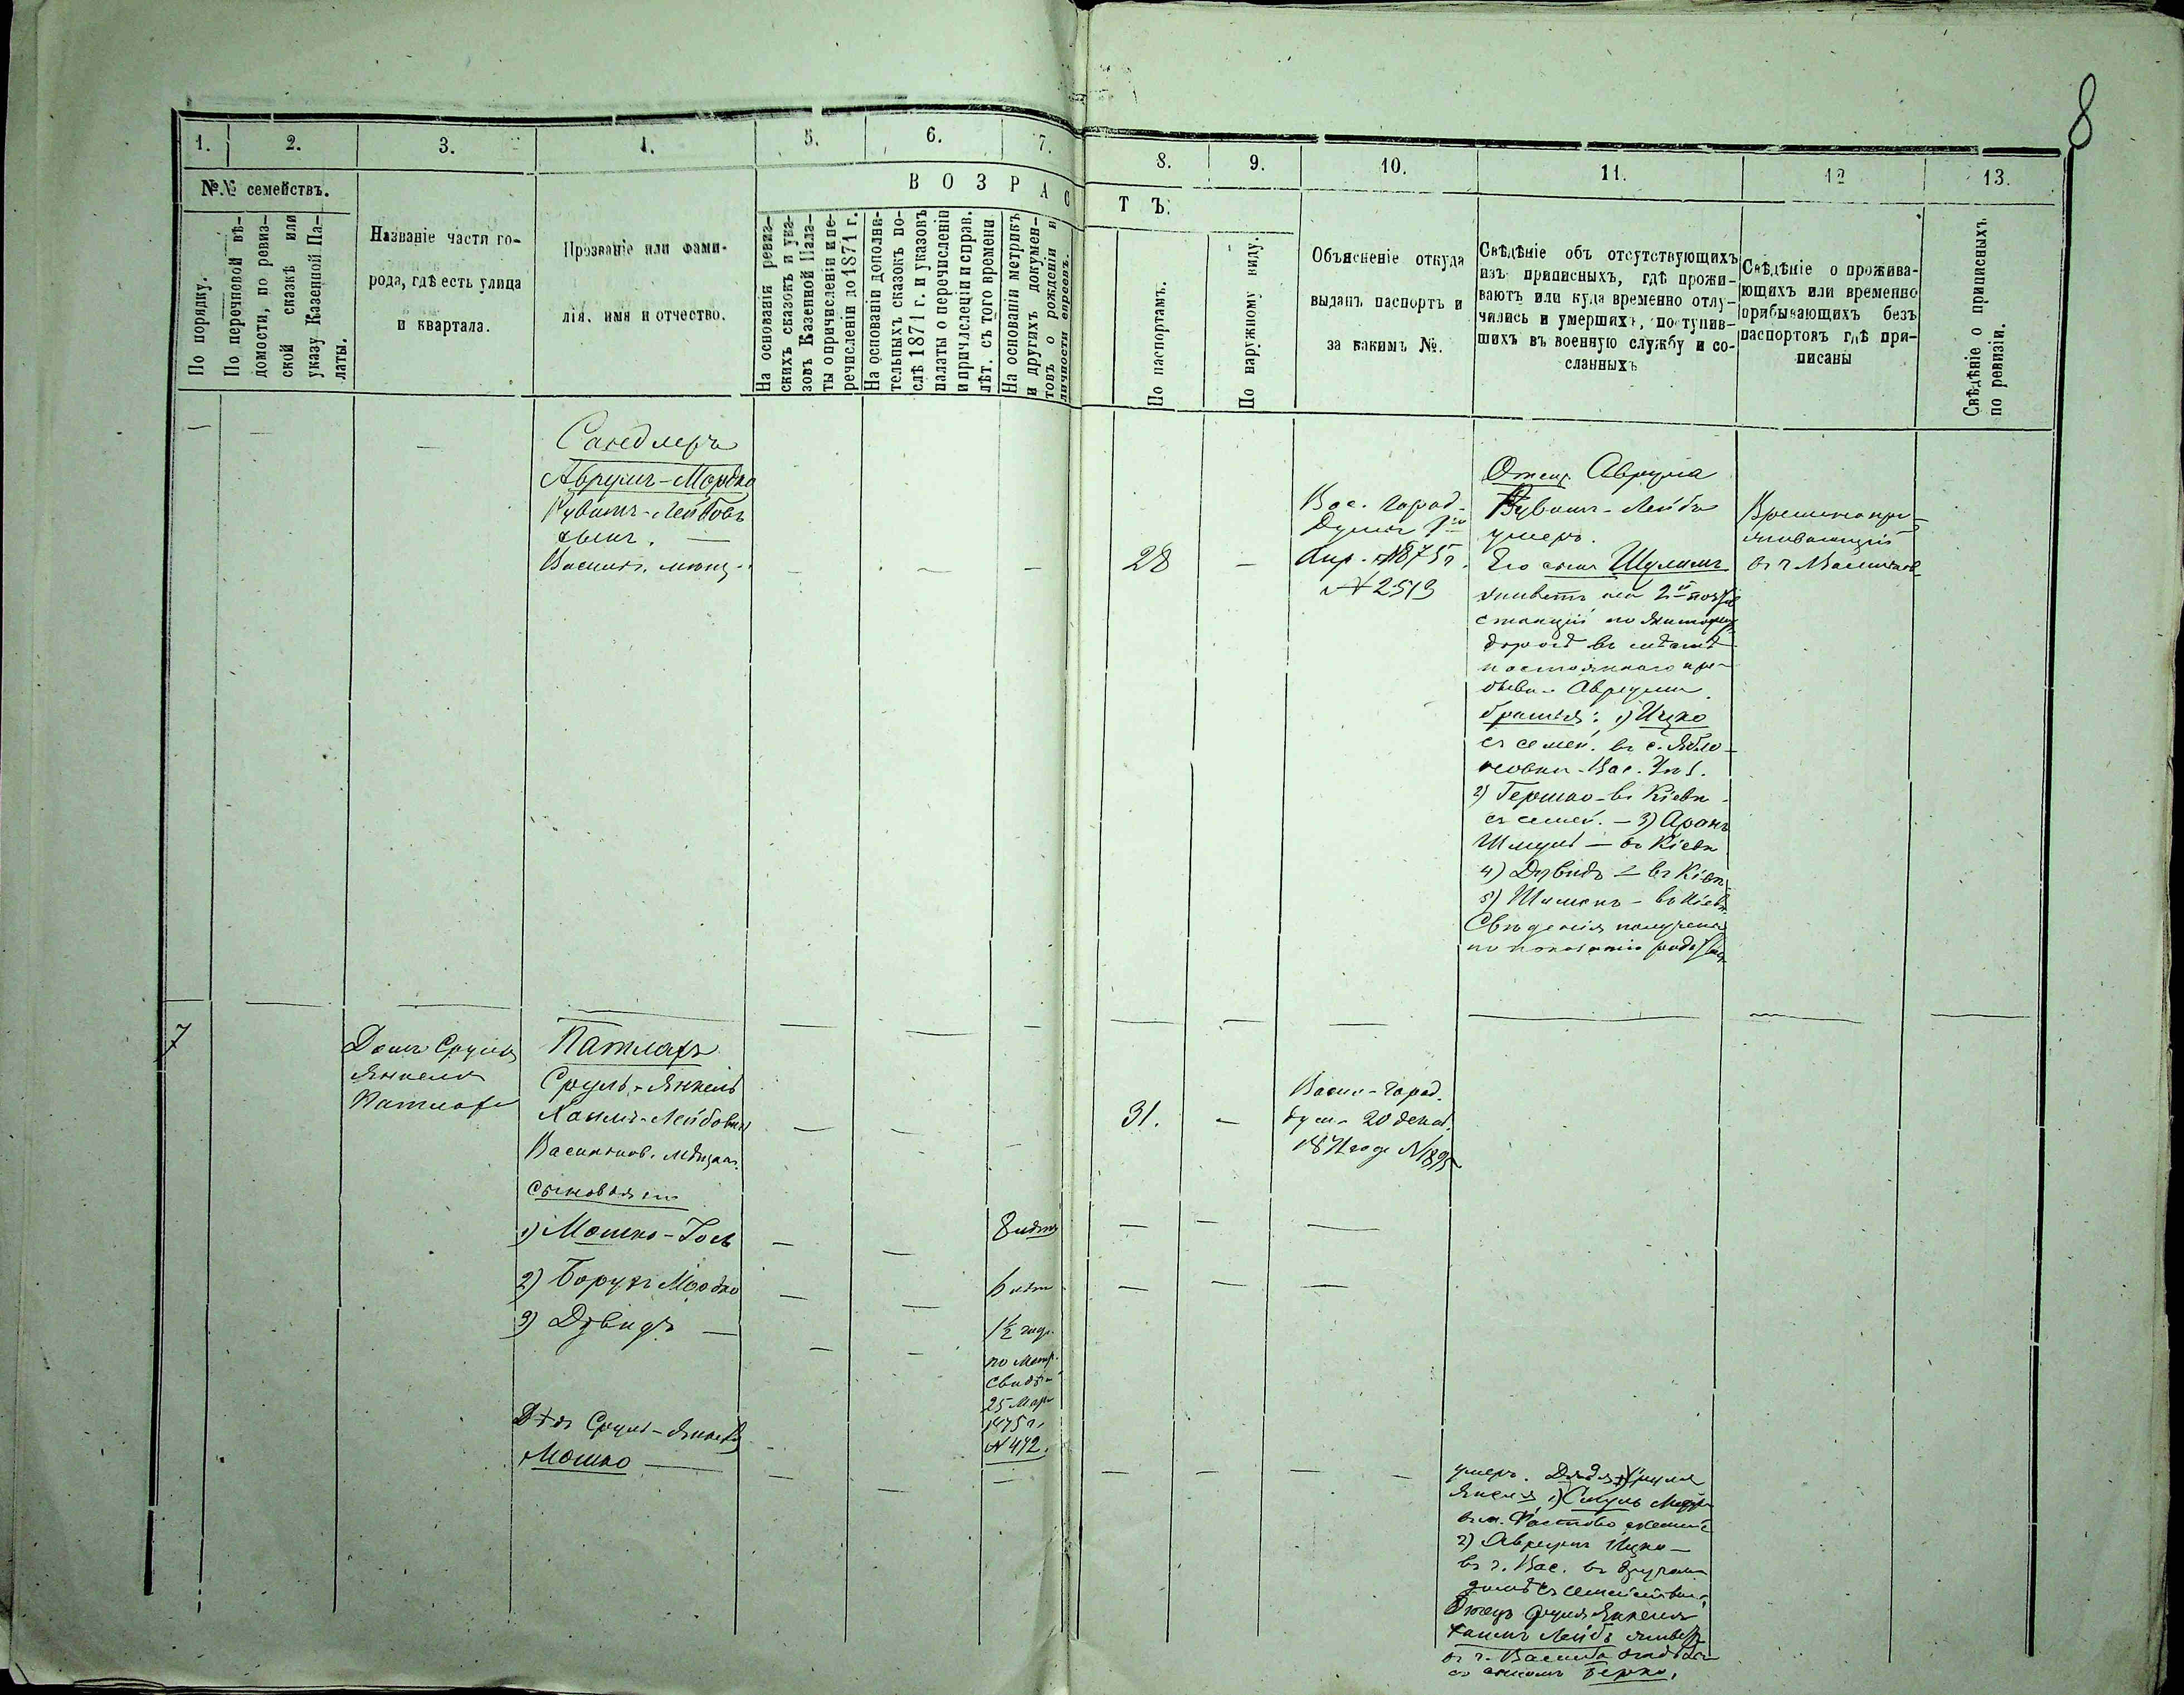 8
1. 2. 3. 4. 5. 6. 7. 8. 9. 10. 11. 12 13.
№№ семействъ.
По порядку.
По перечневой вѣ-
домости, по ревиз-
ской сказкѣ или
указу Казенной Па-
латы.
Названіе части го-
рода, гдѣ есть улица
и квартала.
Прозваніе или фами-
лія, имя и отчество.
ВОЗРАСТЪ.
На основаніи ревиз-
скихъ сказокъ и ука-
зовъ Казенной Пала-
ты о причисленіи и пе-
речисленіи до 1871 г.
На основаніи дополни-
тельныхъ сказокъ по-
слѣ 1871 г. и указовъ
палаты о перечисленіи
и причисленіи и справ.
лѣт. съ того времени
На основаніи метрикъ
и другихъ докумен-
товъ о рожденіи и
личности евреевъ.
По паспортамъ.
По наружному виду.
Объясненіе откуда
выданъ паспортъ и
за какимъ №.
Свѣдѣніе объ отсутствующихъ
изъ приписныхъ, гдѣ прожи-
ваютъ или куда временно отлу-
чились и умершихъ, поступив-
шихъ въ военную службу и со-
сланныхъ
Свѣдѣніе о прожива-
ющихъ или временно
прибывающихъ безъ
паспортовъ гдѣ при-
писаны
Свѣдѣніе о приписныхъ
по ревизіи.
Сандлеръ
Аврумъ-Мордко
Рувимъ-Лейбовъ
сынъ. —
Васильк. мѣщ.
28
Вас. город.
Думы
Апр. 1875 г.
№ 2519
Отецъ Аврума
Рувинъ-Лейба
умеръ.
Его сынъ Шулимъ
живетъ на 2й почт
станціи по Житомір
дорогѣ въ мѣстѣ
постояннаго пре-
быва. Аврума
братья: 1) Ицко
съ семей. въ с. Ябло-
новки Вас. Уѣз.
2) Гершко-въ Кіевѣ
съ семей. — 3) Аронъ
Шмуль — въ Кіевѣ
4) Дувидъ — въ Кіевѣ
5) Шимонъ — въ Кіевѣ
Свѣденія получены
по показанію
Временно про-
живающій
въ г. Васильков
7
Домъ Сруля
Янкеля
Патлаха
Патлахъ
Сруль-Янкель
Хаимъ-Лейбовичъ
Васильков. мѣщан.
сыновья его
1) Мошко-Іось
2) Борухъ Мордко
3) Дувидъ —
Дядя Сруля-Янкеля
Мошко —
8 лѣтъ
6 лѣтъ
1½ года
по Метр.
Свидѣт.
25 Мар
1875 г.
№ 472.
31.
Васил. город.
дум. 20 декаб.
1874 года № 1895
умеръ. Дядя Сруля
Янкеля 1)
въ м. Фастово
2) Аврумъ Ицко —
въ г. Вас. въ другомъ
домѣ съ семействомъ
Отецъ Сруля Янкеля
Хаимъ Лейбъ живетъ
въ г.
съ сыномъ Берко.